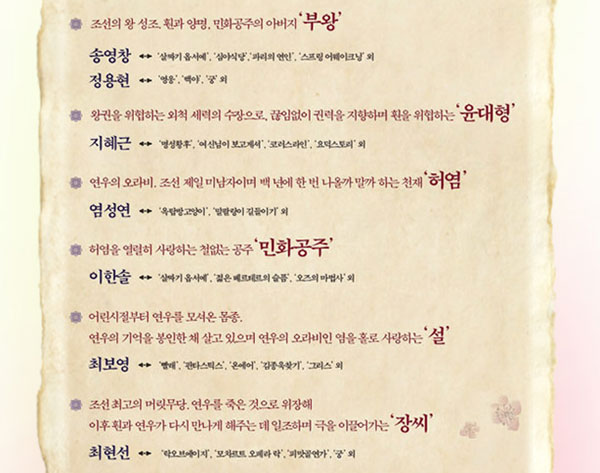 조선의 왕 성조. 훤과 양명, 민화공주의 아버지 '부왕'
송영창 ↔ '살짜기 옵서예', '심야식당', '파리의 연인', '스프링 어웨이크닝' 외
정용현 ↔ '영웅', '백야', '궁' 외
왕권을 위협하는 외척 세력의 수장으로, 끊임없이 권력을 지향하며 훤을 위협하는 '윤대형'
지혜근 ↔ '명성황후', '여신님이 보고계셔', '코러스라인', '요덕스토리' 외
연우의 오라비, 조선 제일 미남자이며 백 년에 한 번 나올까 말까 하는 천재 '허염'
염성연 ↔ '옥탑방고양이', '말괄량이 길들이기' 외
허염을 열렬히 사랑하는 철없는 공주 '민화공주'
이한솔 ↔ '살짜기 옵서예', '젊은 베르테르의 슬픔', '오즈의 마법사' 외
어린시절부터 연우를 모셔온 몸종.
연우의 기억을 봉인한 채 살고 있으며 연우의 오라비인 염을 홀로 사랑하는 '설'
최보영 ↔ '빨래', '판타스틱스', '온에어', '김종욱찾기', '그리스' 외
조선 최고의 머릿무당. 연우를 죽은 것으로 위장해
이후 훤과 연우가 다시 만나게 해주는 데 일조하며 극을 이끌어가는 '장씨'
최현선 ↔ '락오브에이지', '모차르트 오페라 락', '피맛골연가', '궁' 외